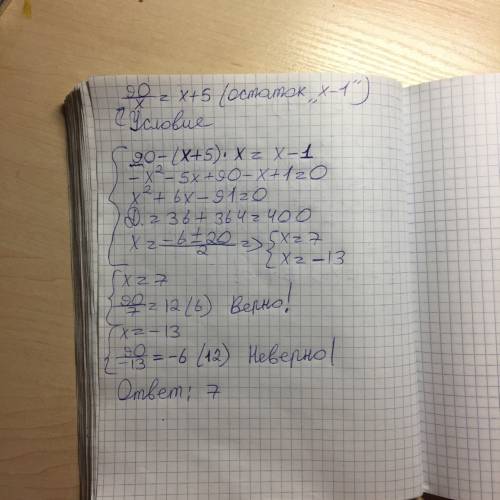 90/x = x+5 (остаток „x-1")
Условие
90-(x+5)·x = x-1
-x²-5x+90-x+1=0
x²+6x-91=0
D.=36+364=400
x=(-6±20)/2 => { x=7
x=-13
x=7
90/7=12(6) Верно!
x=-13
90/-13=-6(12) Неверно!
Ответ: 7